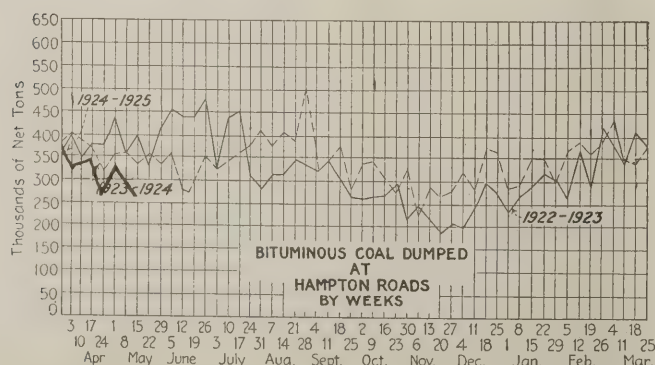 650
600
550
500
450
400
350
300
250
200
150
100
50
0
Thousands of Net Tons
1924-1925
1923-1924
1922-1923
BITUMINOUS COAL DUMPED
AT
HAMPTON ROADS
BY WEEKS
3 17 1 15 29 12 26 10 24 7 21 4 18 2 16 30 13 27 11 25 8 22 5 19 4 18
10 24 8 22 5 19 3 17 31 14 28 11 25 9 23 6 20 4 18 1 15 29 12 26 11 25
Apr May June July Aug. Sept. Oct. Nov. Dec. Jan Feb. Mar.